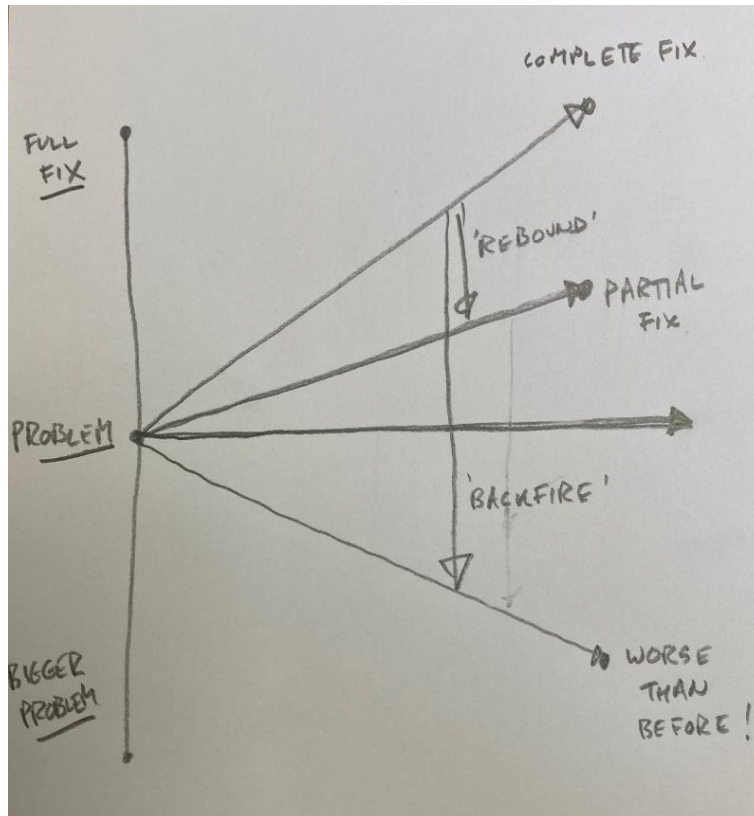 COMPLETE FIX
FULL
FIX
'REBOUND'
PARTIAL
FIX
PROBLEM
'BACKFIRE'
BIGGER
PROBLEM
WORSE
THAN
BEFORE!